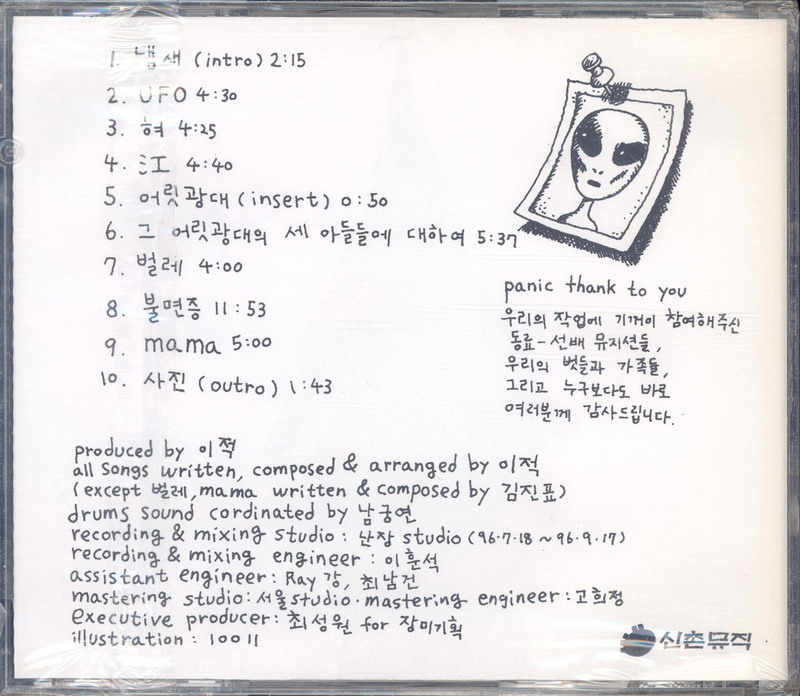 1. 냄새 (intro) 2:15
2. UFO 4:30
3. 혀 4:25
4. 강 4:40
5. 어릿광대 (insert) 0:50
6. 그 어릿광대의 세 아들들에 대하여 5:37
7. 벌레 4:00
8. 불면증 11:53
9. mama 5:00
10. 사진 (outro) 1:43
panic thank to you
우리의 작업에 기꺼이 참여해주신
동료-선배 뮤지션들,
우리의 벗들과 가족들,
그리고 누구보다도 바로
여러분께 감사드립니다.
produced by 이적
all songs written, composed & arranged by 이적
(except 벌레, mama written & composed by 김진표)
drums sound cordinated by 남궁연
recording & mixing studio : 난장 studio (96·7·18 ~ 96·9·17)
recording & mixing engineer : 이훈석
assistant engineer : Ray 강, 최남건
mastering studio : 서울 studio · mastering engineer : 고희정
executive producer : 최성원 for 장미기획
illustration : 10011
신촌뮤직